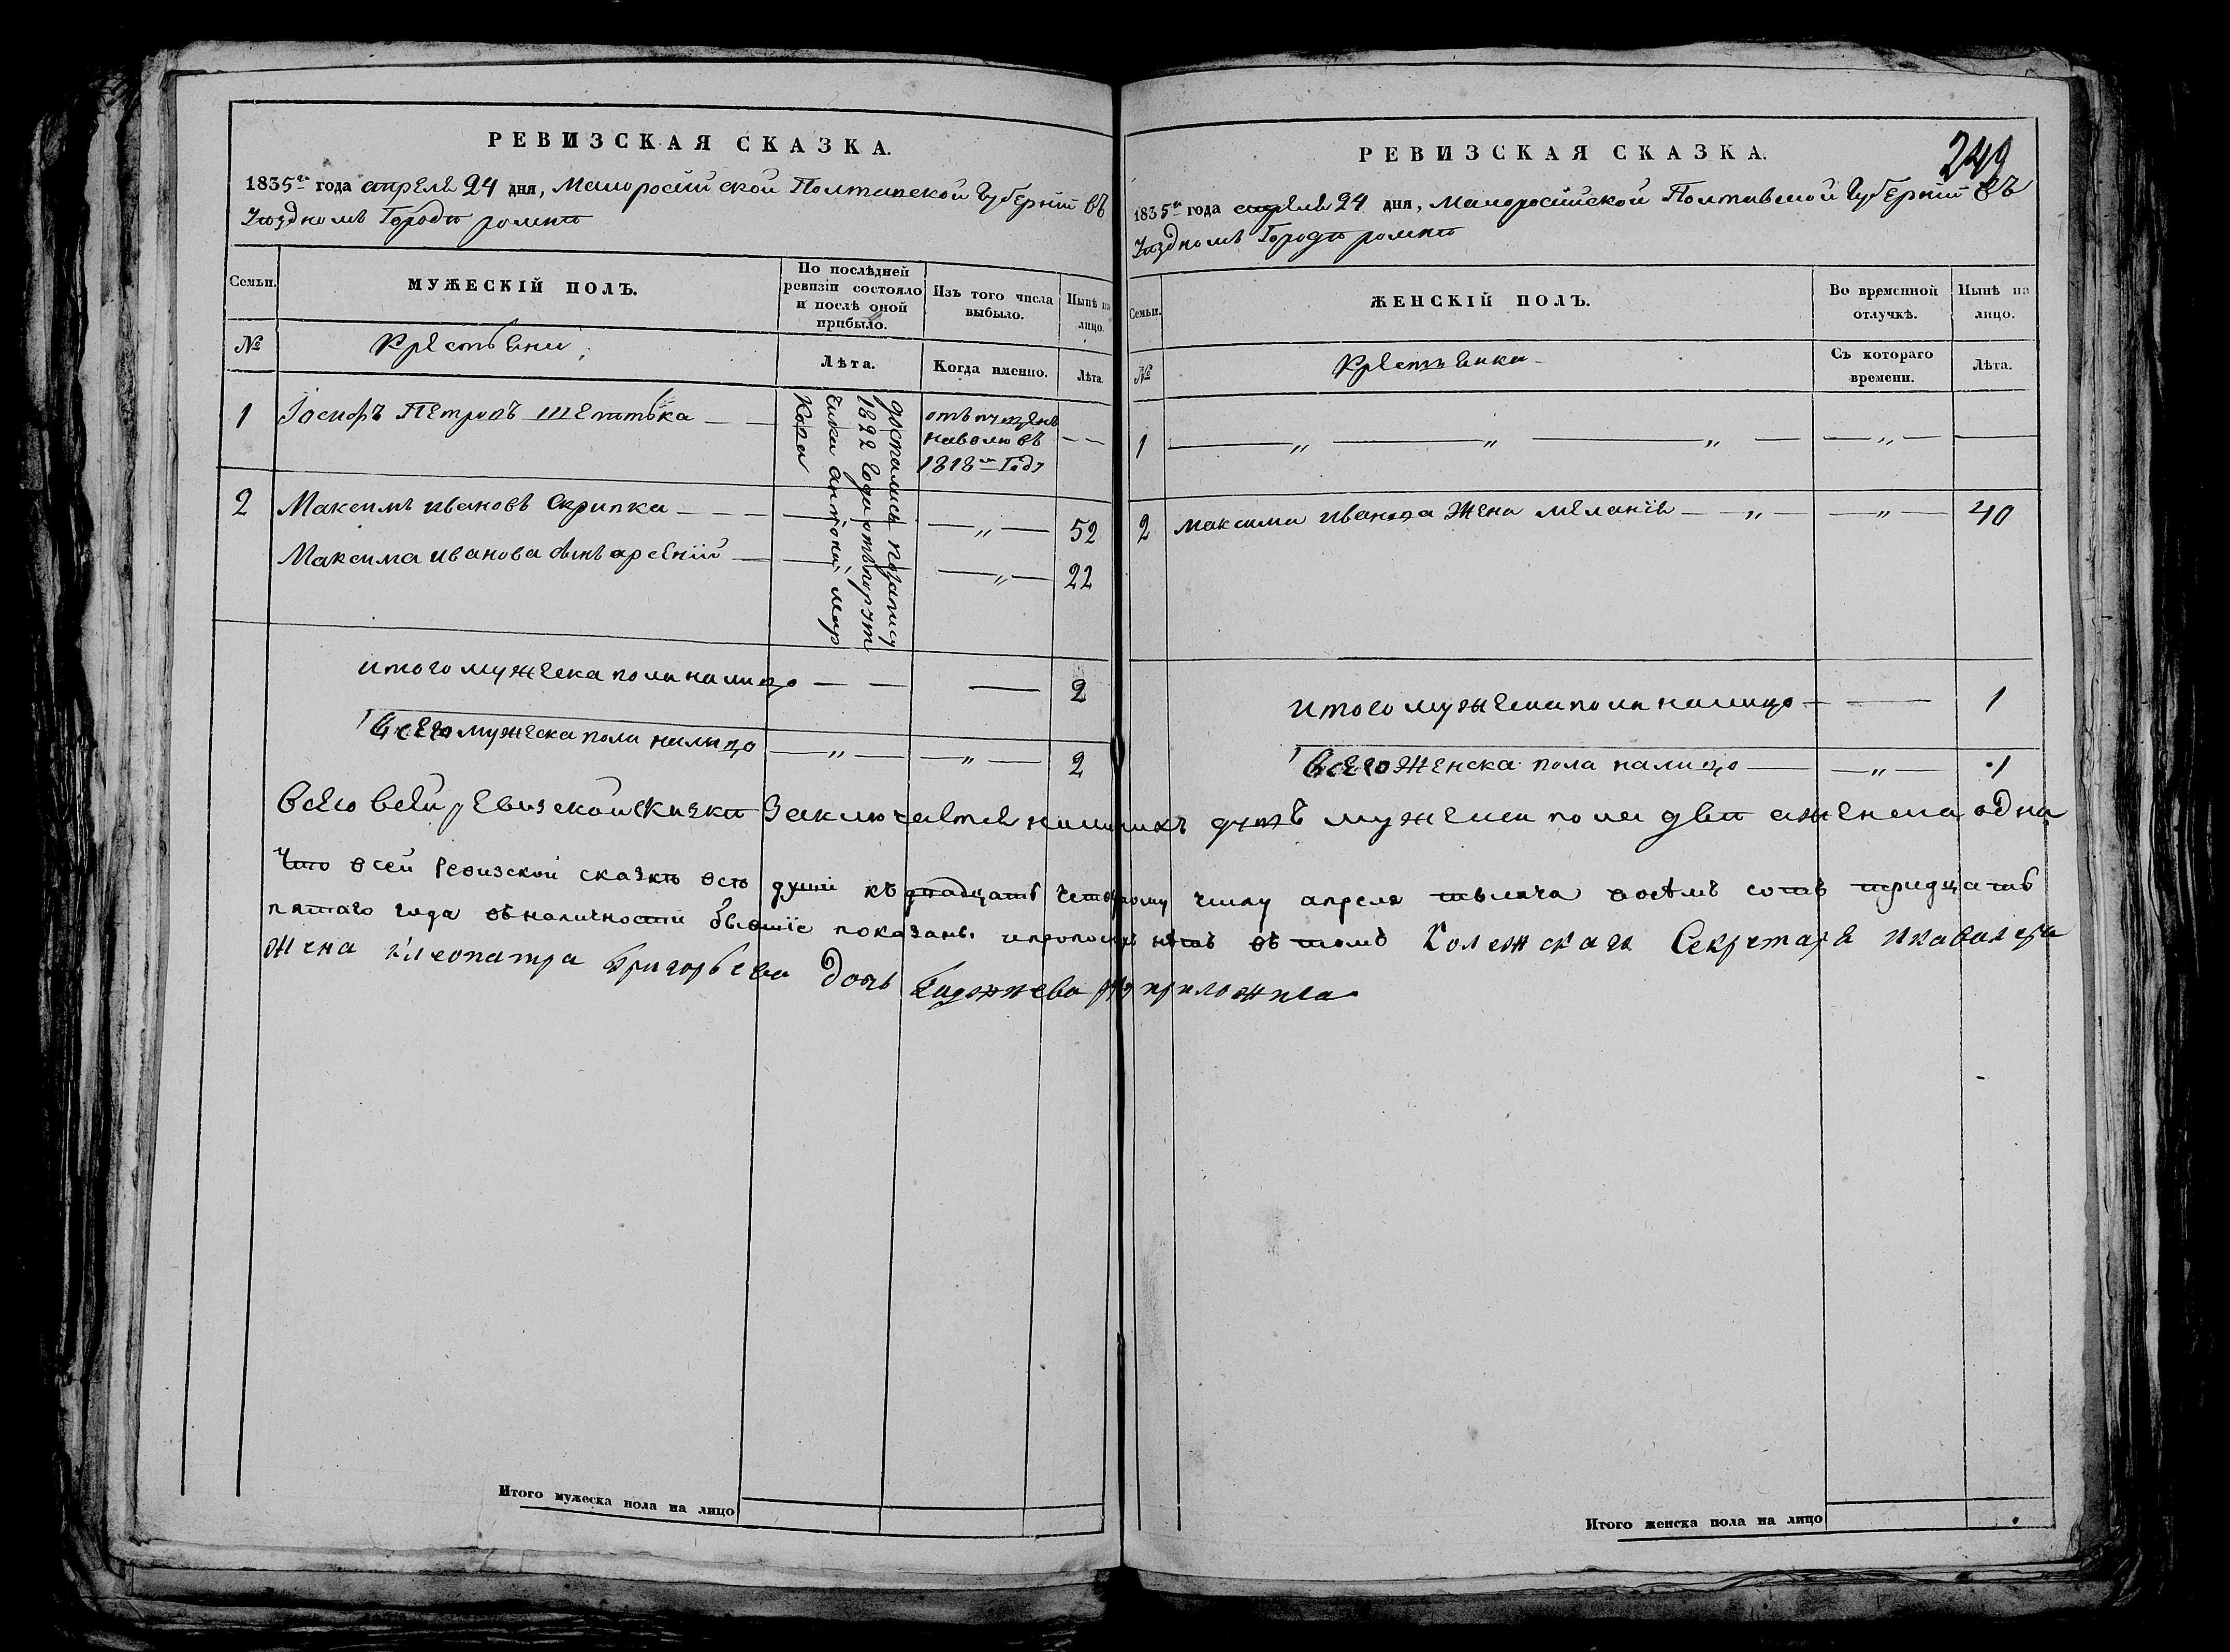 РЕВИЗСКАЯ СКАЗКА.
1835го года апреля 24 дня, Малоросiйской Полтавской Губернiи въ
Уѣздномъ Городѣ ромнѣ
Семьи.
МУЖЕСКІЙ ПОЛЪ.
По послѣдней ревизіи состояло и послѣ оной прибыло.
Изъ того числа выбыло.
Нынѣ на лицо.
№
Крестьяни
Лѣта.
Когда именно.
Лѣта.
1
Іосифъ Петровъ Шепитька
отъпущенъ
наволю въ
1818м Году
достались позапису
1822 Года отъпоруч
чика антоній мар
кова
2
Максимъ ивановъ Скрипка
52
Максима иванова сынъ арсеній
22
итого мужеска пола налицо
2
Всего мужеска пола налицо
2
249
РЕВИЗСКАЯ СКАЗКА.
1835го года апреля 24 дня, Малоросiйской Полтавской Губернiи въ
Уѣздномъ Городѣ ромнѣ
Семьи.
ЖЕНСКІЙ ПОЛЪ.
Во временной отлучкѣ.
Нынѣ на лицо.
№
Крестьянки
Съ котораго времени.
Лѣта.
1
2
максима иванова жена меланія
40
итого мужеска пола налицо
1
Всего Женска пола налицо
1
Всего всей ревизской Сказки Заключается наличихъ душъ мужеска пола две аженска одна
Что всей Ревизской сказкѣ всѣ души къ двадцать четвертому числу апреля тысяча восемъ сотъ тридцать
пятаго года въналичности бывшіе показаны ипропоску нѣтъ въ томъ Колежскаго Секретаря икавалера
жена клеопатра Григорьева дочь руку приложила
Итого мужеска пола на лицо
Итого женска пола на лицо